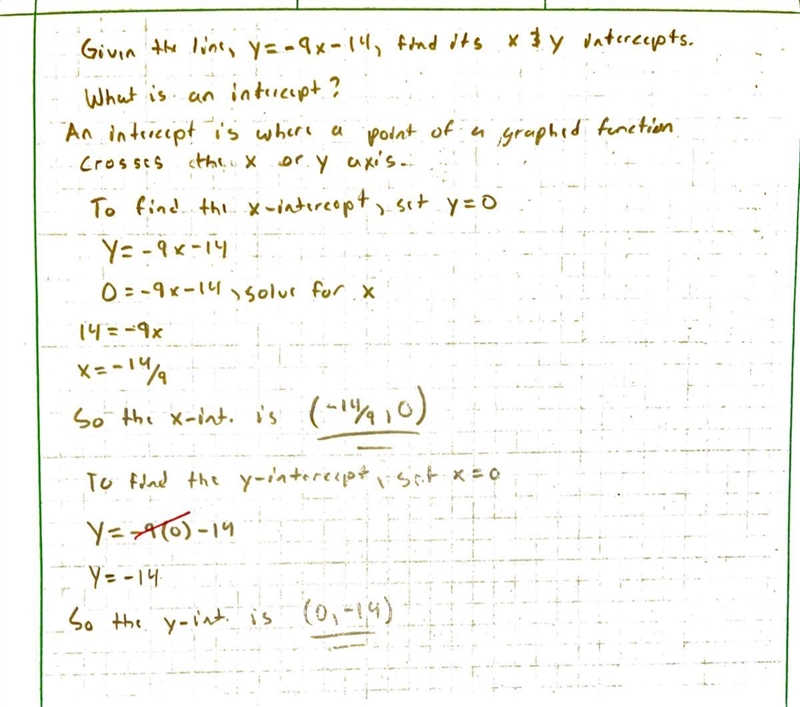 Given the line, y=-9x-14, find its x & y intercepts.
What is an intercept?
An intercept is where a point of a graphed function
crosses the x or y axis.
To find the x-intercept, set y=0
y=-9x-14
0=-9x-14, solve for x
14=-9x
x=-14/9
So the x-int. is (-14/9, 0)
To find the y-intercept, set x=0
y=-9(0)-14
y=-14
So the y-int. is (0,-14)